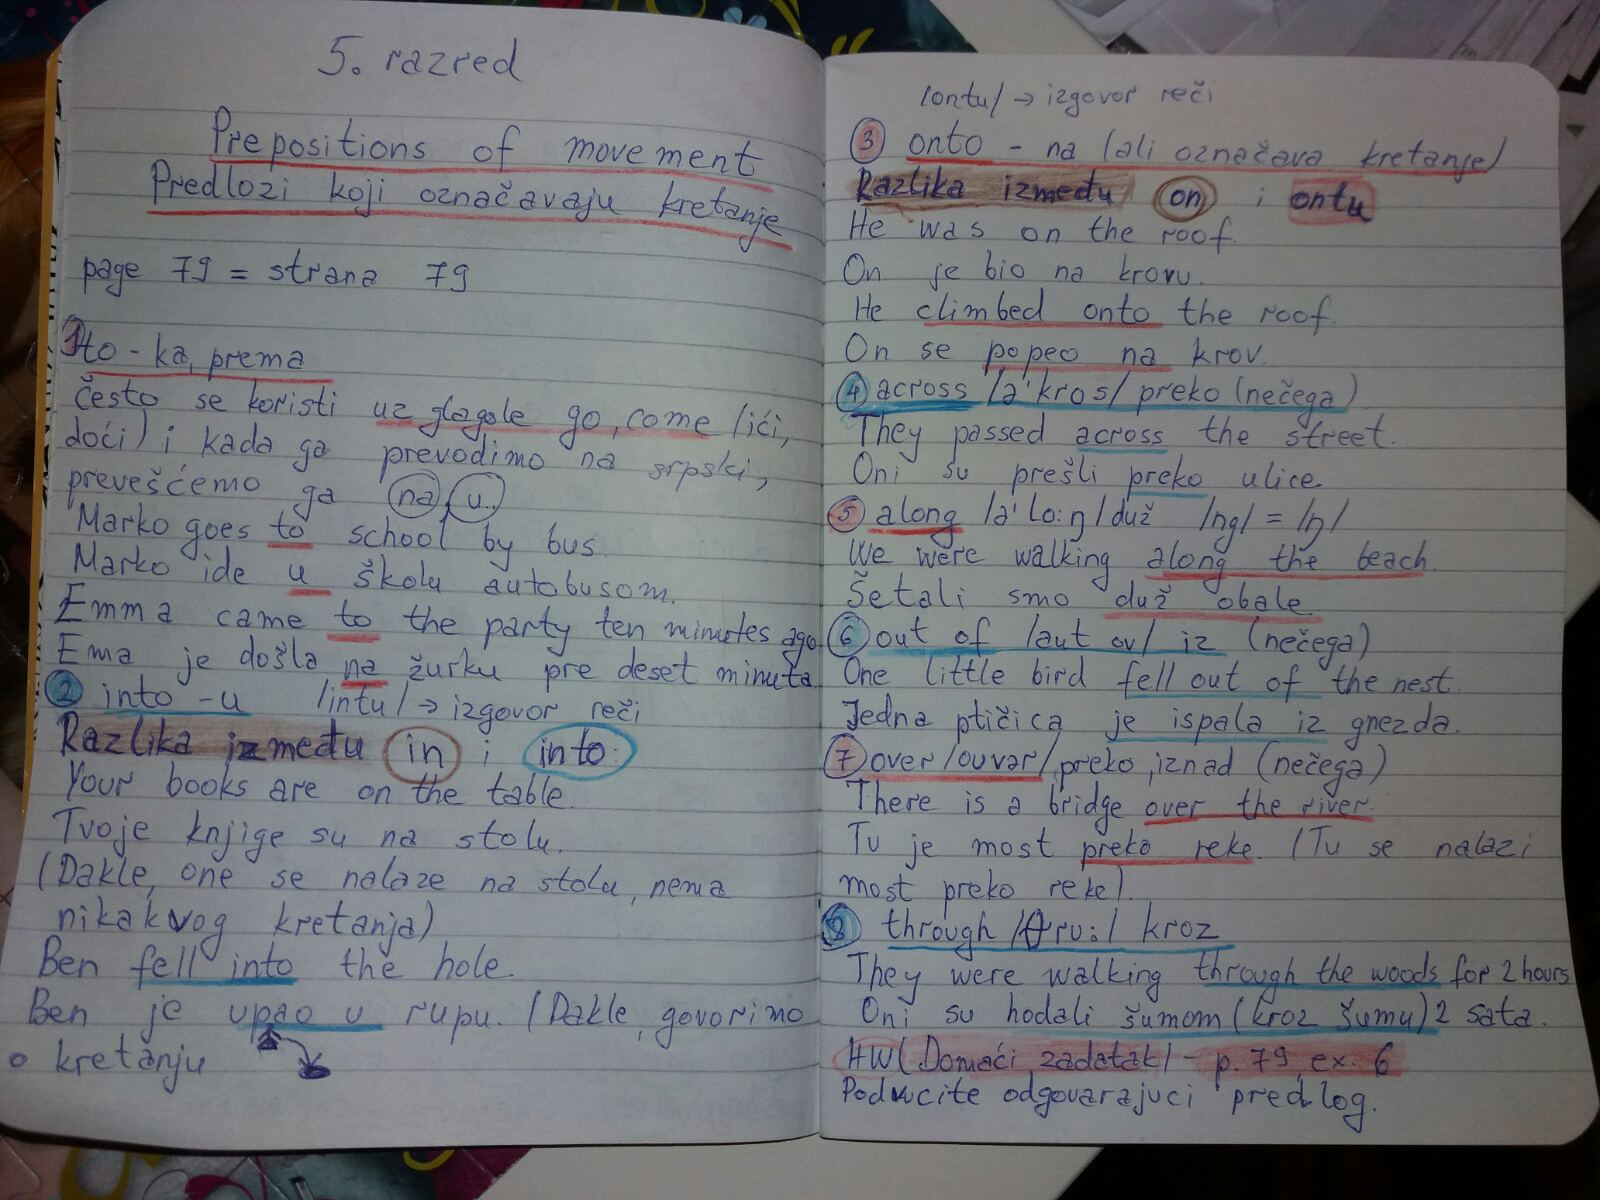 5. razred
Prepositions of movement
Predlozi koji označavaju kretanje
page 79 = strana 79
1 to - ka, prema
često se koristi uz glagole go, come (ići,
doći) i kada ga prevodimo na srpski,
prevešćemo ga na, u.
Marko goes to school by bus.
Marko ide u školu autobusom.
Emma came to the party ten minutes ago
Ema je došla na žurku pre deset minuta.
2 into - u /intu/ → izgovor reči
Razlika između in i into:
Your books are on the table.
Tvoje knjige su na stolu.
(Dakle, one se nalaze na stolu, nema
nikakvog kretanja)
Ben fell into the hole.
Ben je upao u rupu. (Dakle, govorimo
o kretanju
/ontu/ → izgovor reči
3 onto - na (ali označava kretanje)
Razlika između on i ontu
He was on the roof.
On je bio na krovu.
He climbed onto the roof.
On se popeo na krov.
4 across /ə'kros/ preko (nečega)
They passed across the street.
Oni su prešli preko ulice.
5 along /ə'lo:ŋ/ duž /ng/ = /ŋ/
We were walking along the beach.
Šetali smo duž obale.
6 out of /aut ov/ iz (nečega)
One little bird fell out of the nest.
Jedna ptičica je ispala iz gnezda.
7 over /ouvər/, preko, iznad (nečega)
There is a bridge over the river.
Tu je most preko reke. (Tu se nalazi
most preko reke).
8 through /θru:/ kroz
They were walking through the woods for 2 hours
Oni su hodali šumom (kroz šumu) 2 sata.
HW (Domaći zadatak) - p. 79, ex. 6
Podvucite odgovarajuci predlog.